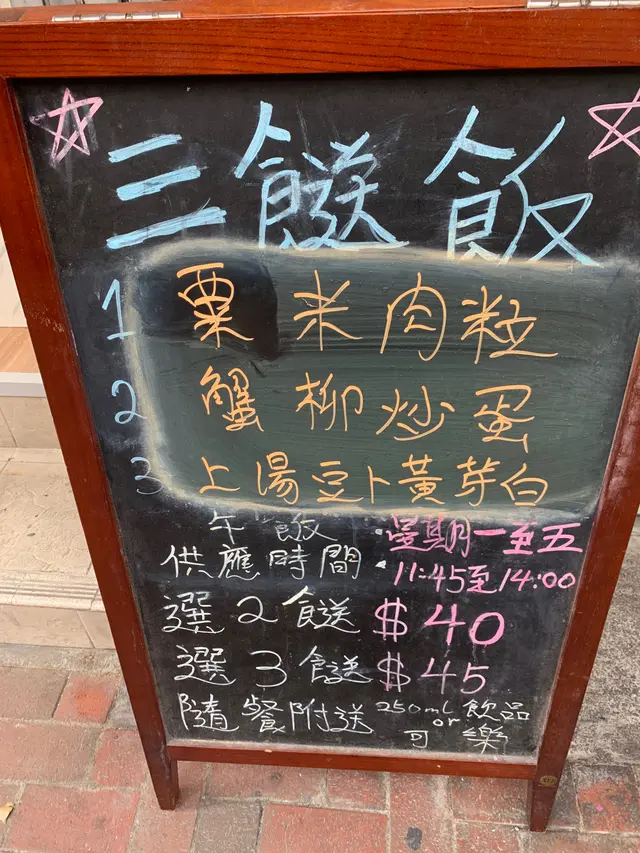 三餸飯
1 粟米肉粒
2 蟹柳炒蛋
3 上湯豆卜黃芽白
午飯
供應時間
星期一至五
11:45至14:00
選2餸 $40
選3餸 $45
隨餐附送 250mL 飲品
or
可樂